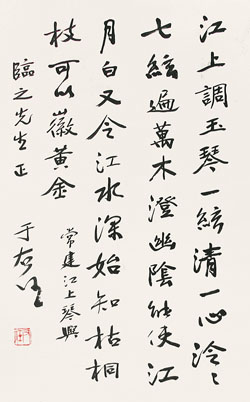 江上調玉琴一絃清一心泠〻
七絃遍萬木澄幽陰能使江
月白又令江水深始知枯桐
枝可以徽黃金
常建江上琴興
臨之先生正
于右任